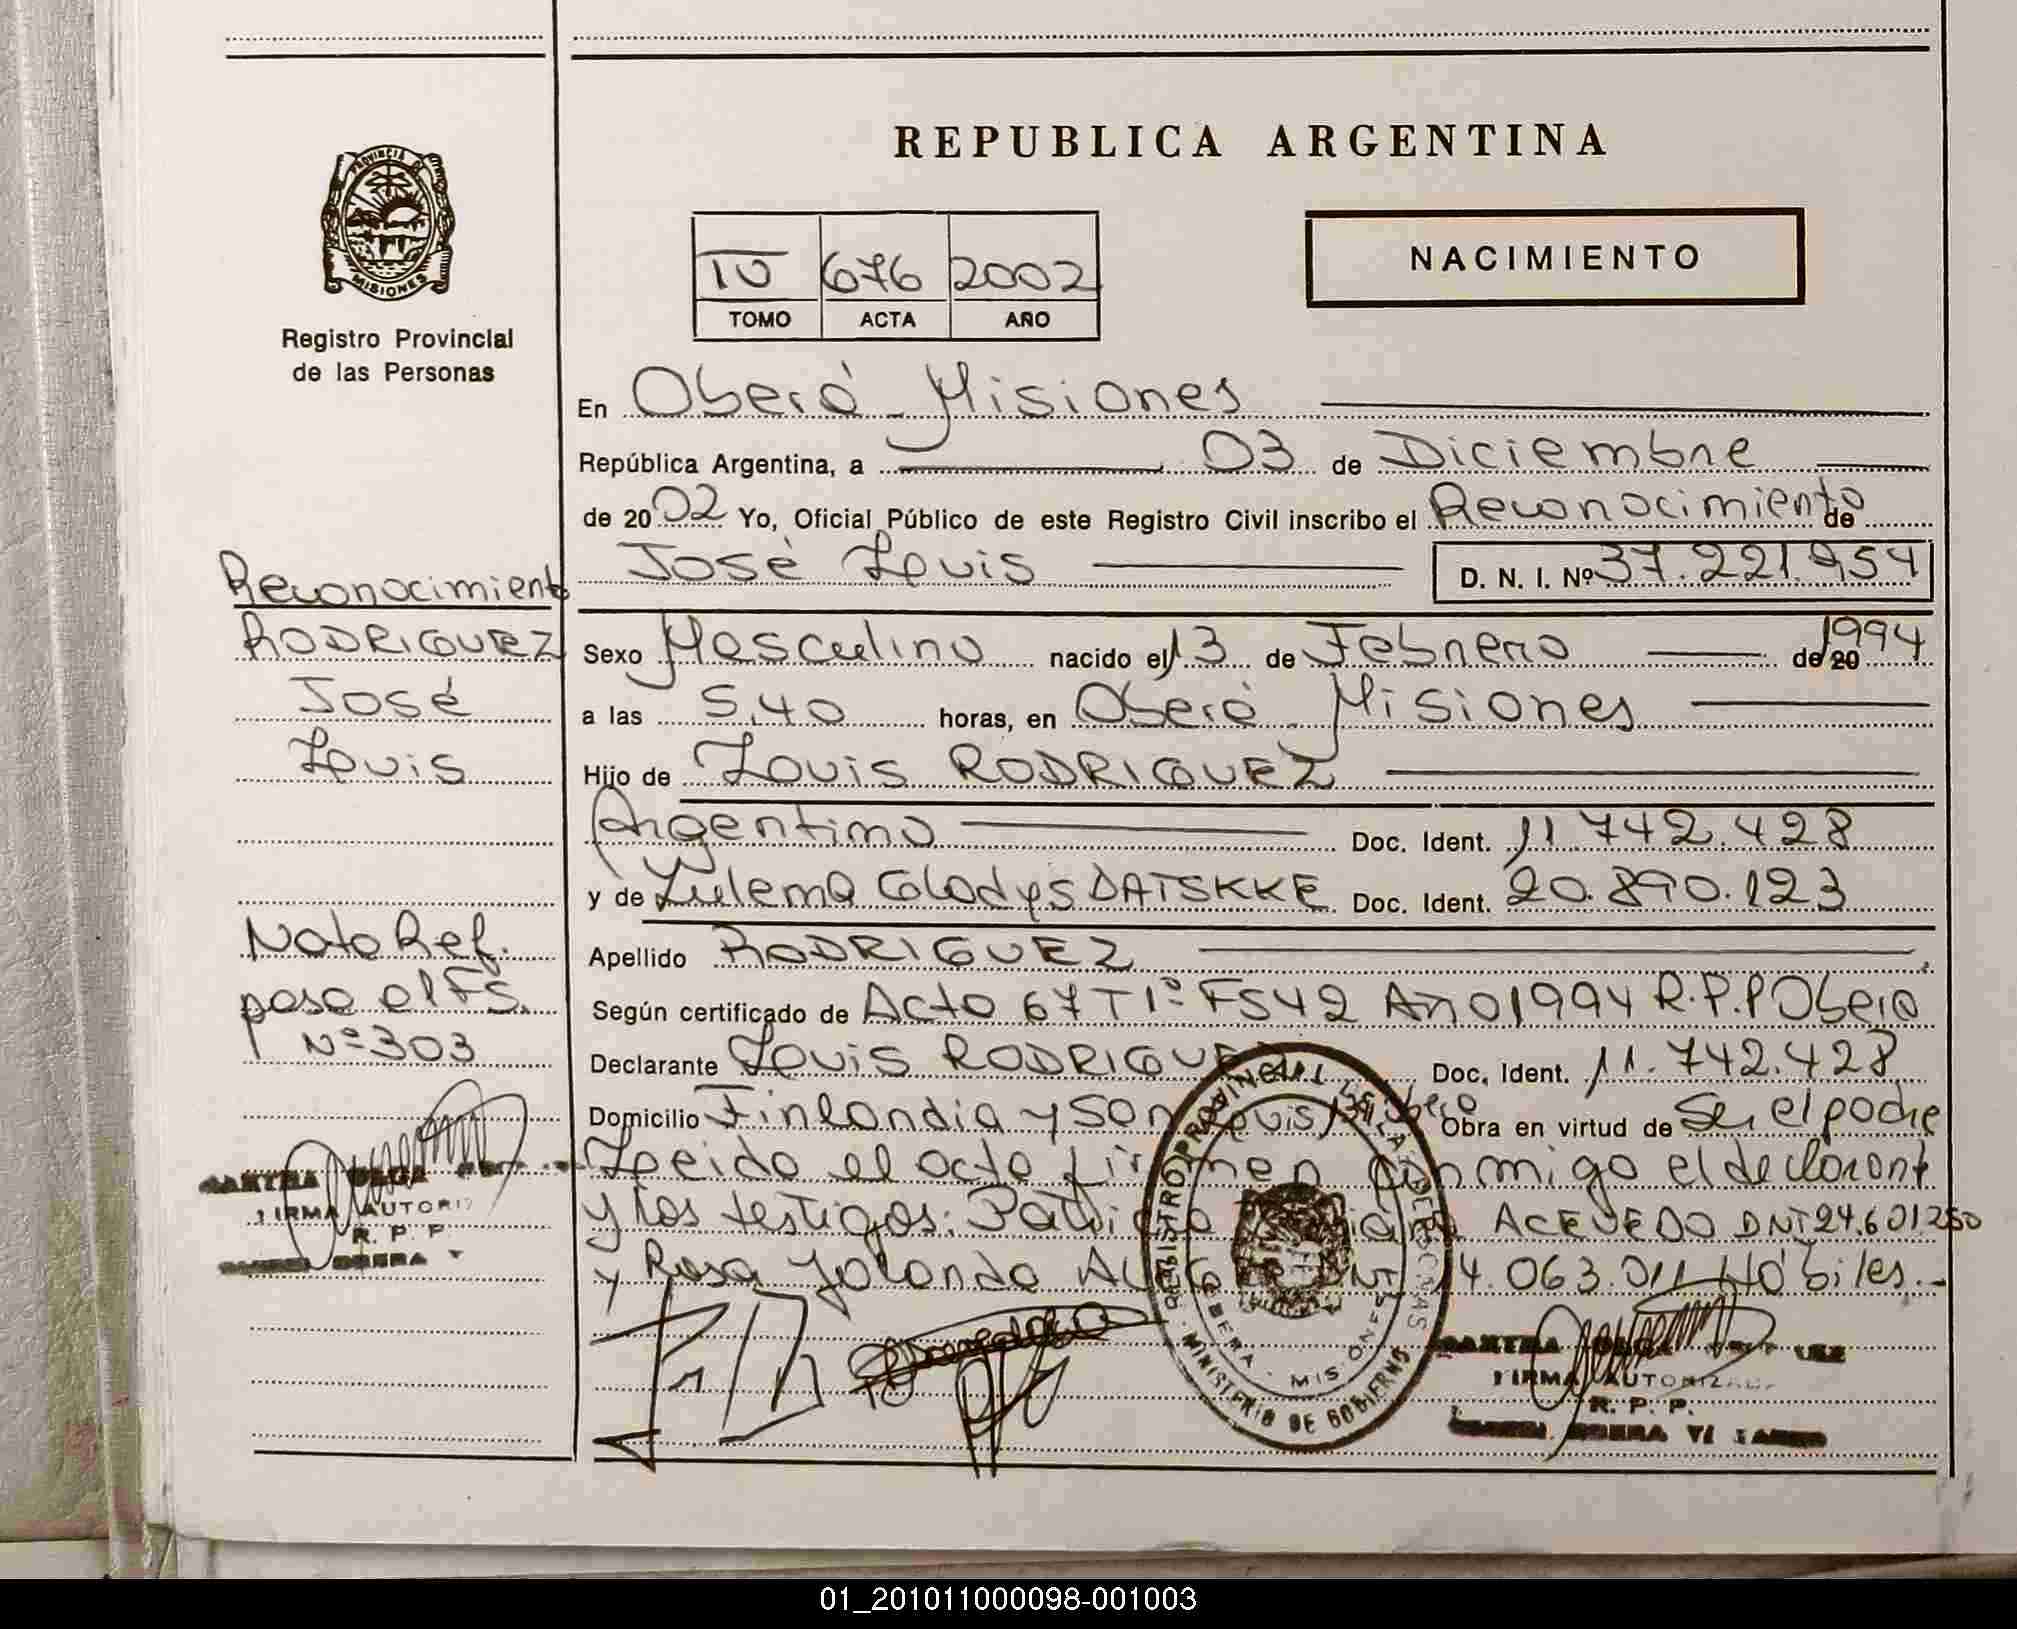 PROVINCIA DE
MISIONES
Registro Provincial
de las Personas
REPUBLICA ARGENTINA
NACIMIENTO
676 2002
TOMO ACTA AÑO
En Oberá Misiones
República Argentina, a 03 de Diciembre
de 2002 Yo, Oficial Público de este Registro Civil inscribo el Reconocimiento de
José Luis D. N. I. Nº 37.221.954
Reconocimiento
RODRIGUEZ
José
Luis
Sexo Masculino nacido el 13 de Febrero de 1994
a las 5,40 horas, en Oberá Misiones
Hijo de Louis RODRIGUEZ
Argentino Doc. Ident. 11.742.428
y de Zulema Gladys DATSKKE Doc. Ident. 20.890.123
Apellido RODRIGUEZ
Según certificado de Acta 67 T 1º FS 42 Año 1994 R.P.P Oberá
Declarante Louis RODRIGUEZ Doc. Ident. 11.742.428
Domicilio Finlandia y San Luis Oberá Obra en virtud de Ser el padre
Leido el acta firman conmigo el declarante
y los testigos: ACEVEDO DNI 24.601.250
y Rosa Yolanda 4.063.011 Hábiles.-
Nota Ref.
pasa al FS.
Nº 303
FIRMA AUTORIZ
R. P. P.
REGISTRO PROVINCIAL DE LAS PERSONAS
OBERA - MISIONES
MINISTERIO DE GOBIERNO
FIRMA AUTORIZADA
R. P. P.
01_201011000098-001003